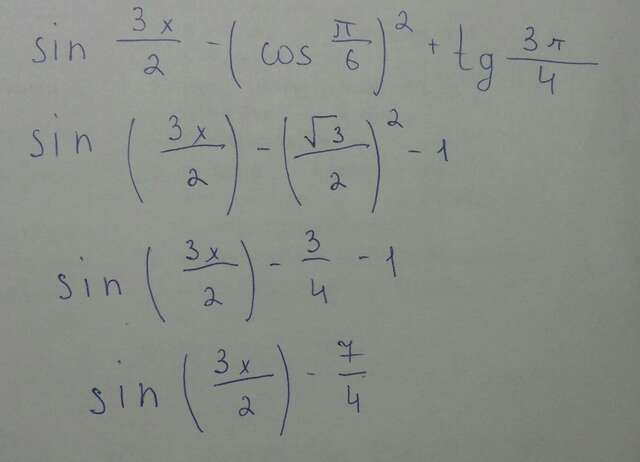 sin 3x/2 - (cos π/6)² + tg 3π/4
sin (3x/2) - (√3/2)² - 1
sin (3x/2) - 3/4 - 1
sin (3x/2) - 7/4